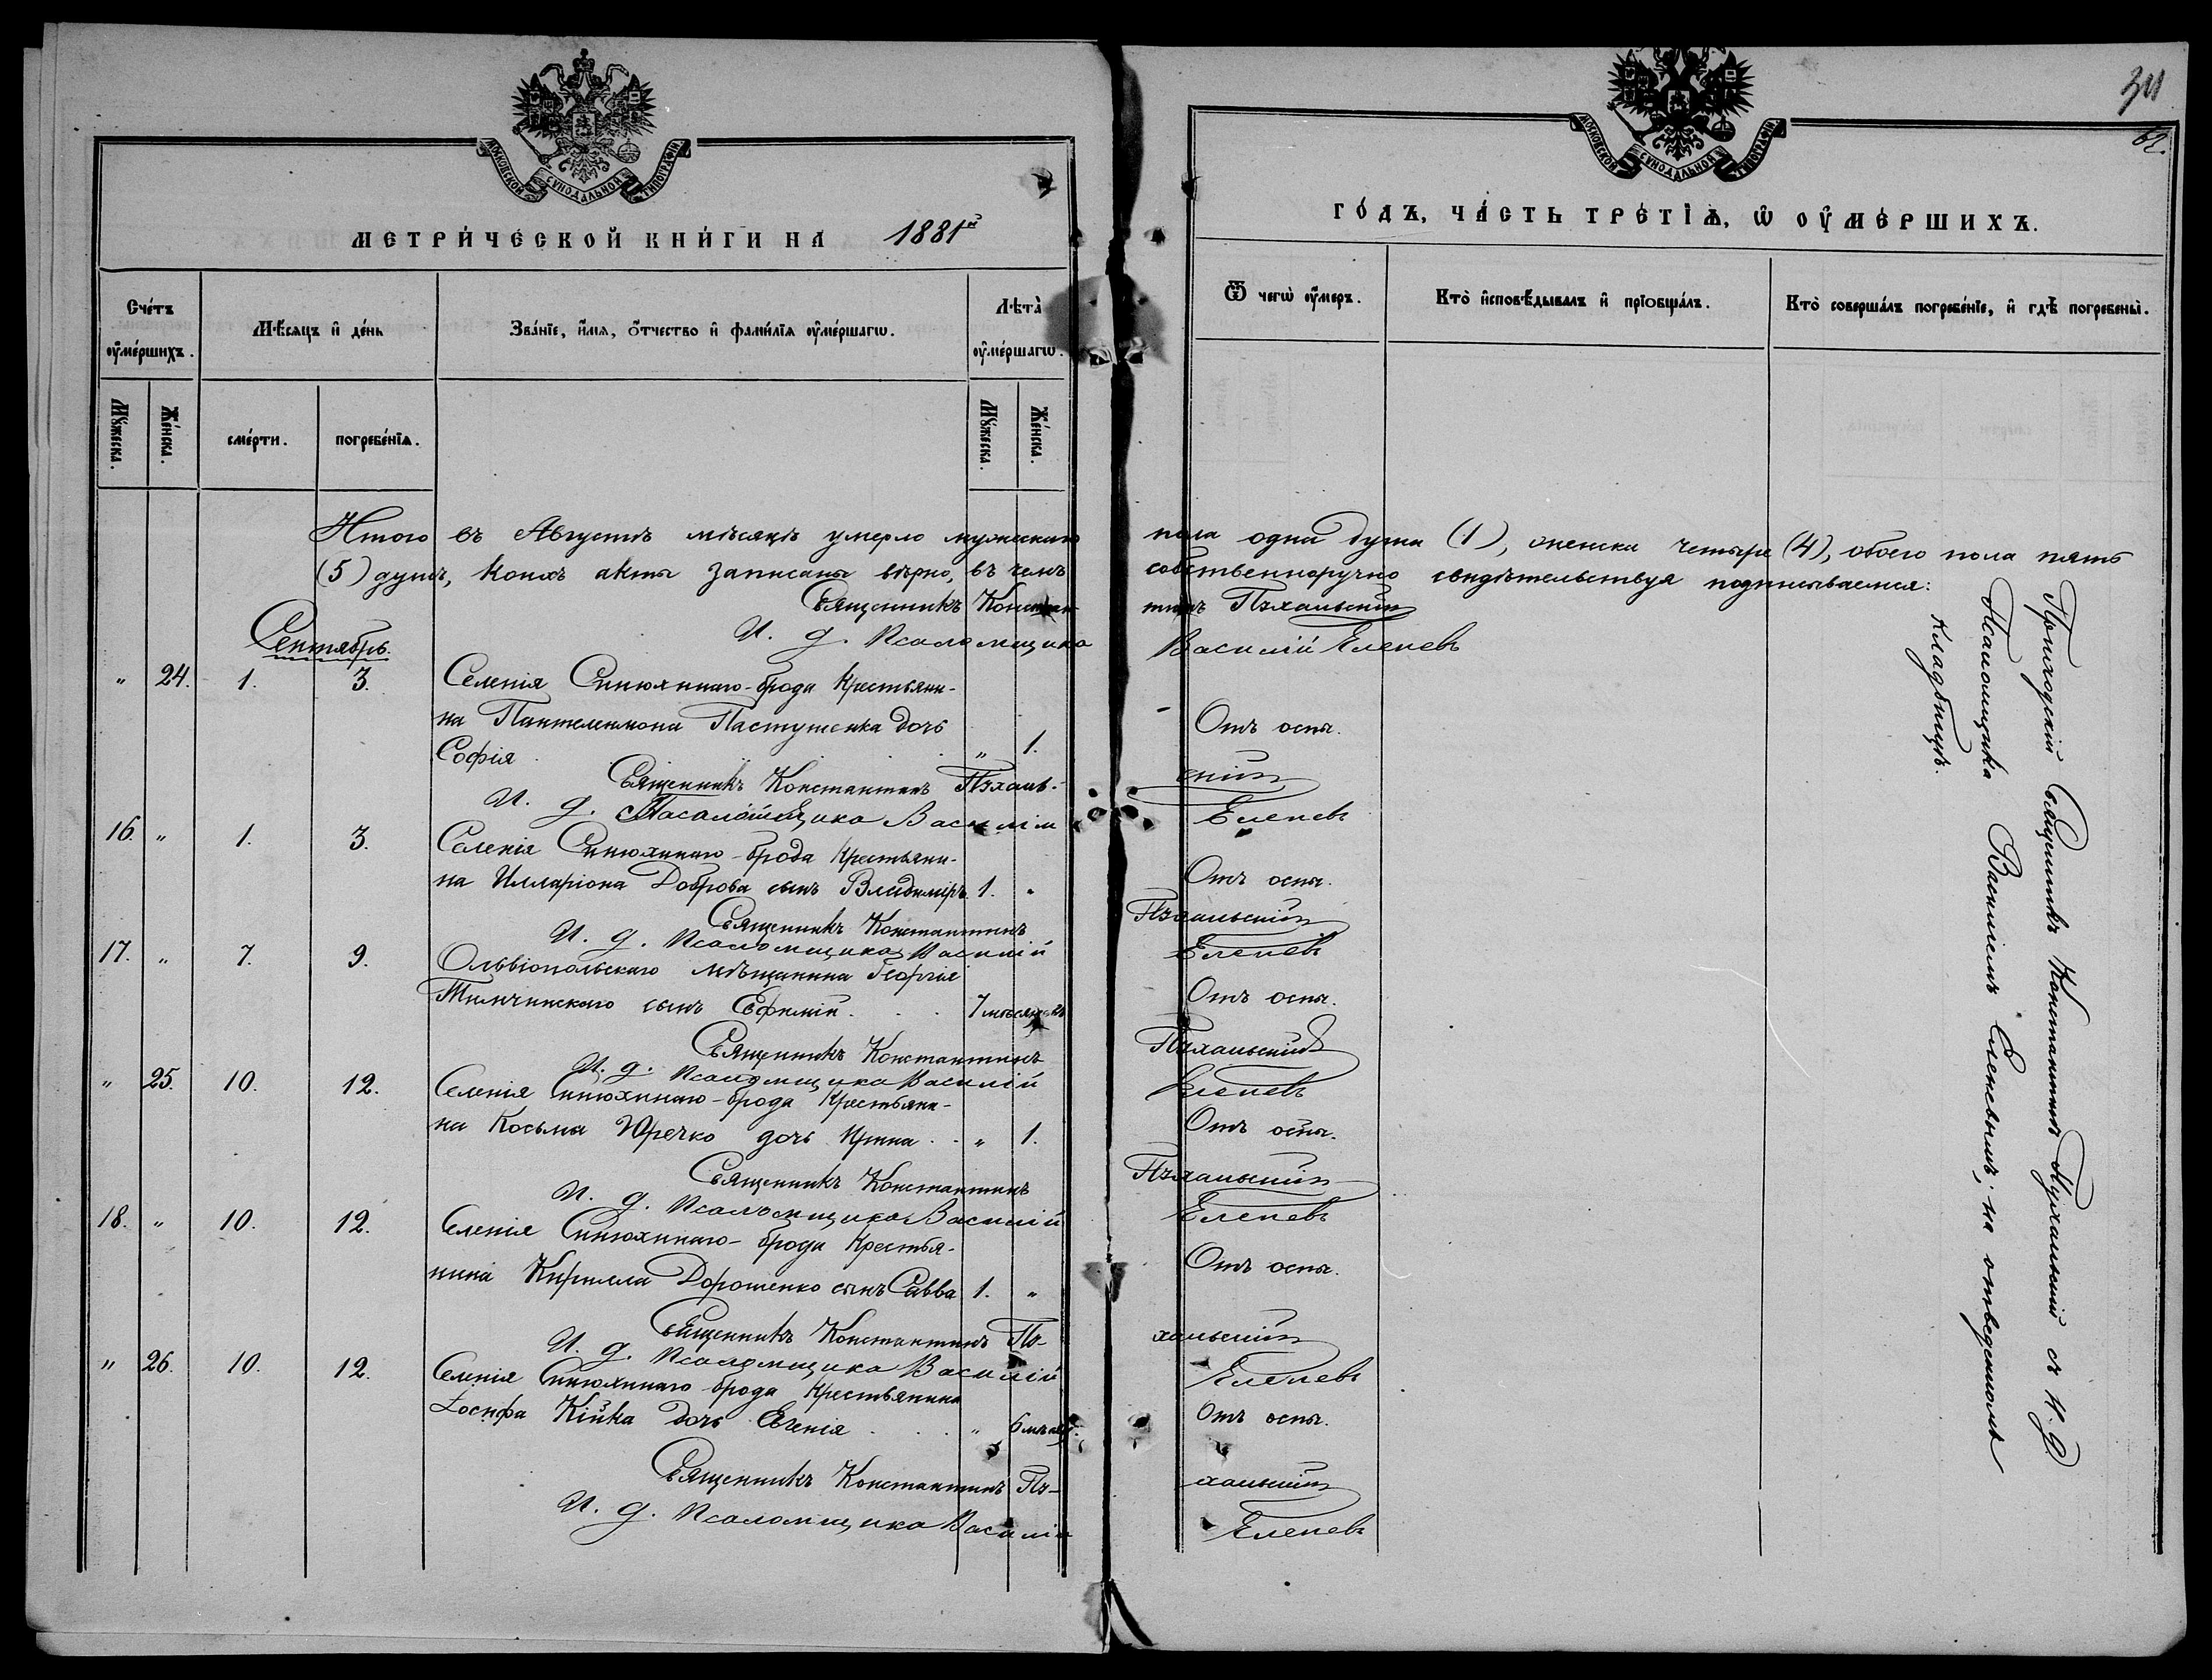 МОСКОВСКОЙ СѴНОДАЛЬНОЙ ТИПОГРАФІИ
МЕТРИ́ЧЕСКОЙ КНИ́ГИ НА 1881й
Сче́тъ ᲂу҆ме́ршихъ.
Мѣ́сяцъ и҆ де́нь
Зва́нїе, и҆́мѧ, ѻ҆́тчество и҆ фами́лїѧ ᲂу҆ме́ршагѡ.
Лѣ́та ᲂу҆ме́ршагѡ.
Мꙋ́жеска.
Же́нска.
сме́рти.
погребе́нїѧ.
Мꙋ́жеска.
Же́нска.
Итого въ Августѣ мѣсяцѣ умерло мужеского
(5) душъ, коихъ акты записаны вѣрно, въ чемъ
Священникъ Констан-
И. д. Псаломщика
Сентябрь.
" 24. 1. 3. Селенія Синюхинаго-брода Крестьяни-
на Пантелеимона Пастушенка дочь
Софія . " 1.
Священникъ Константинъ Пэхаль-
И. д. Псаломщика Василій
16. " 1. 3. Селенія Синюхинаго-брода Крестьяни-
на Илларіона Доброва сынъ Владиміръ 1. "
Священникъ Константинъ
И. д. Псаломщика Василій
17. " 7. 9. Ольвіопольскаго мѣщанина Георгія
Тимчинскаго сынъ Евфимій . . . 7 мѣсяцевъ
Священникъ Константинъ
И. д. Псаломщика Василій
" 25. 10. 12. Селенія Синюхинаго-брода Крестьяни-
на Косьма Юречко дочь Ирина . . " 1.
Священникъ Константинъ
И. д. Псаломщика Василій
18. " 10. 12. Селенія Синюхинаго-брода Крестья-
нина Кирилла Дорошенко сынъ Савва 1. "
Священникъ Константинъ Пэ-
И. д. Псаломщика Василій
" 26. 10. 12. Селенія Синюхинаго-брода Крестьянина
Іосифа Кійка дочь Евгенія . . . " 6 мѣсяц.
Священникъ Константинъ Пэ-
И. д. Псаломщика Василій
62.
МОСКОВСКОЙ СѴНОДАЛЬНОЙ ТИПОГРАФІИ
ГО́ДЪ, ЧА́СТЬ ТРЕ́ТЇѦ, Ѡ҆ ОУ҆МЕ́РШИХЪ.
Ѿ чегѡ̀ ᲂу҆́меръ.
Кто̀ и҆сповѣ́дывалъ и҆ прїѡбща́лъ.
Кто̀ соверша́лъ погребе́нїе, и҆ гдѣ̀ погребены̀.
пола одна душа (1), женска четыре (4), обоего пола пять
собственноручно свидѣтельствуя подписываемся:
тинъ Пэхальскій
Василій Еленевъ
Отъ оспы.
скій
Еленевъ
Отъ оспы.
Пэхальскій
Еленевъ
Отъ оспы.
Пэхальскій
Еленевъ
Отъ оспы.
Пэхальскій
Еленевъ
Отъ оспы.
хальскій
Еленевъ
Отъ оспы.
хальскій
Еленевъ
Приходскій Священникъ Константинъ Пэхальскій съ И. д.
Псаломщика Василіемъ Еленевымъ; на отведенномъ
кладбищѣ.